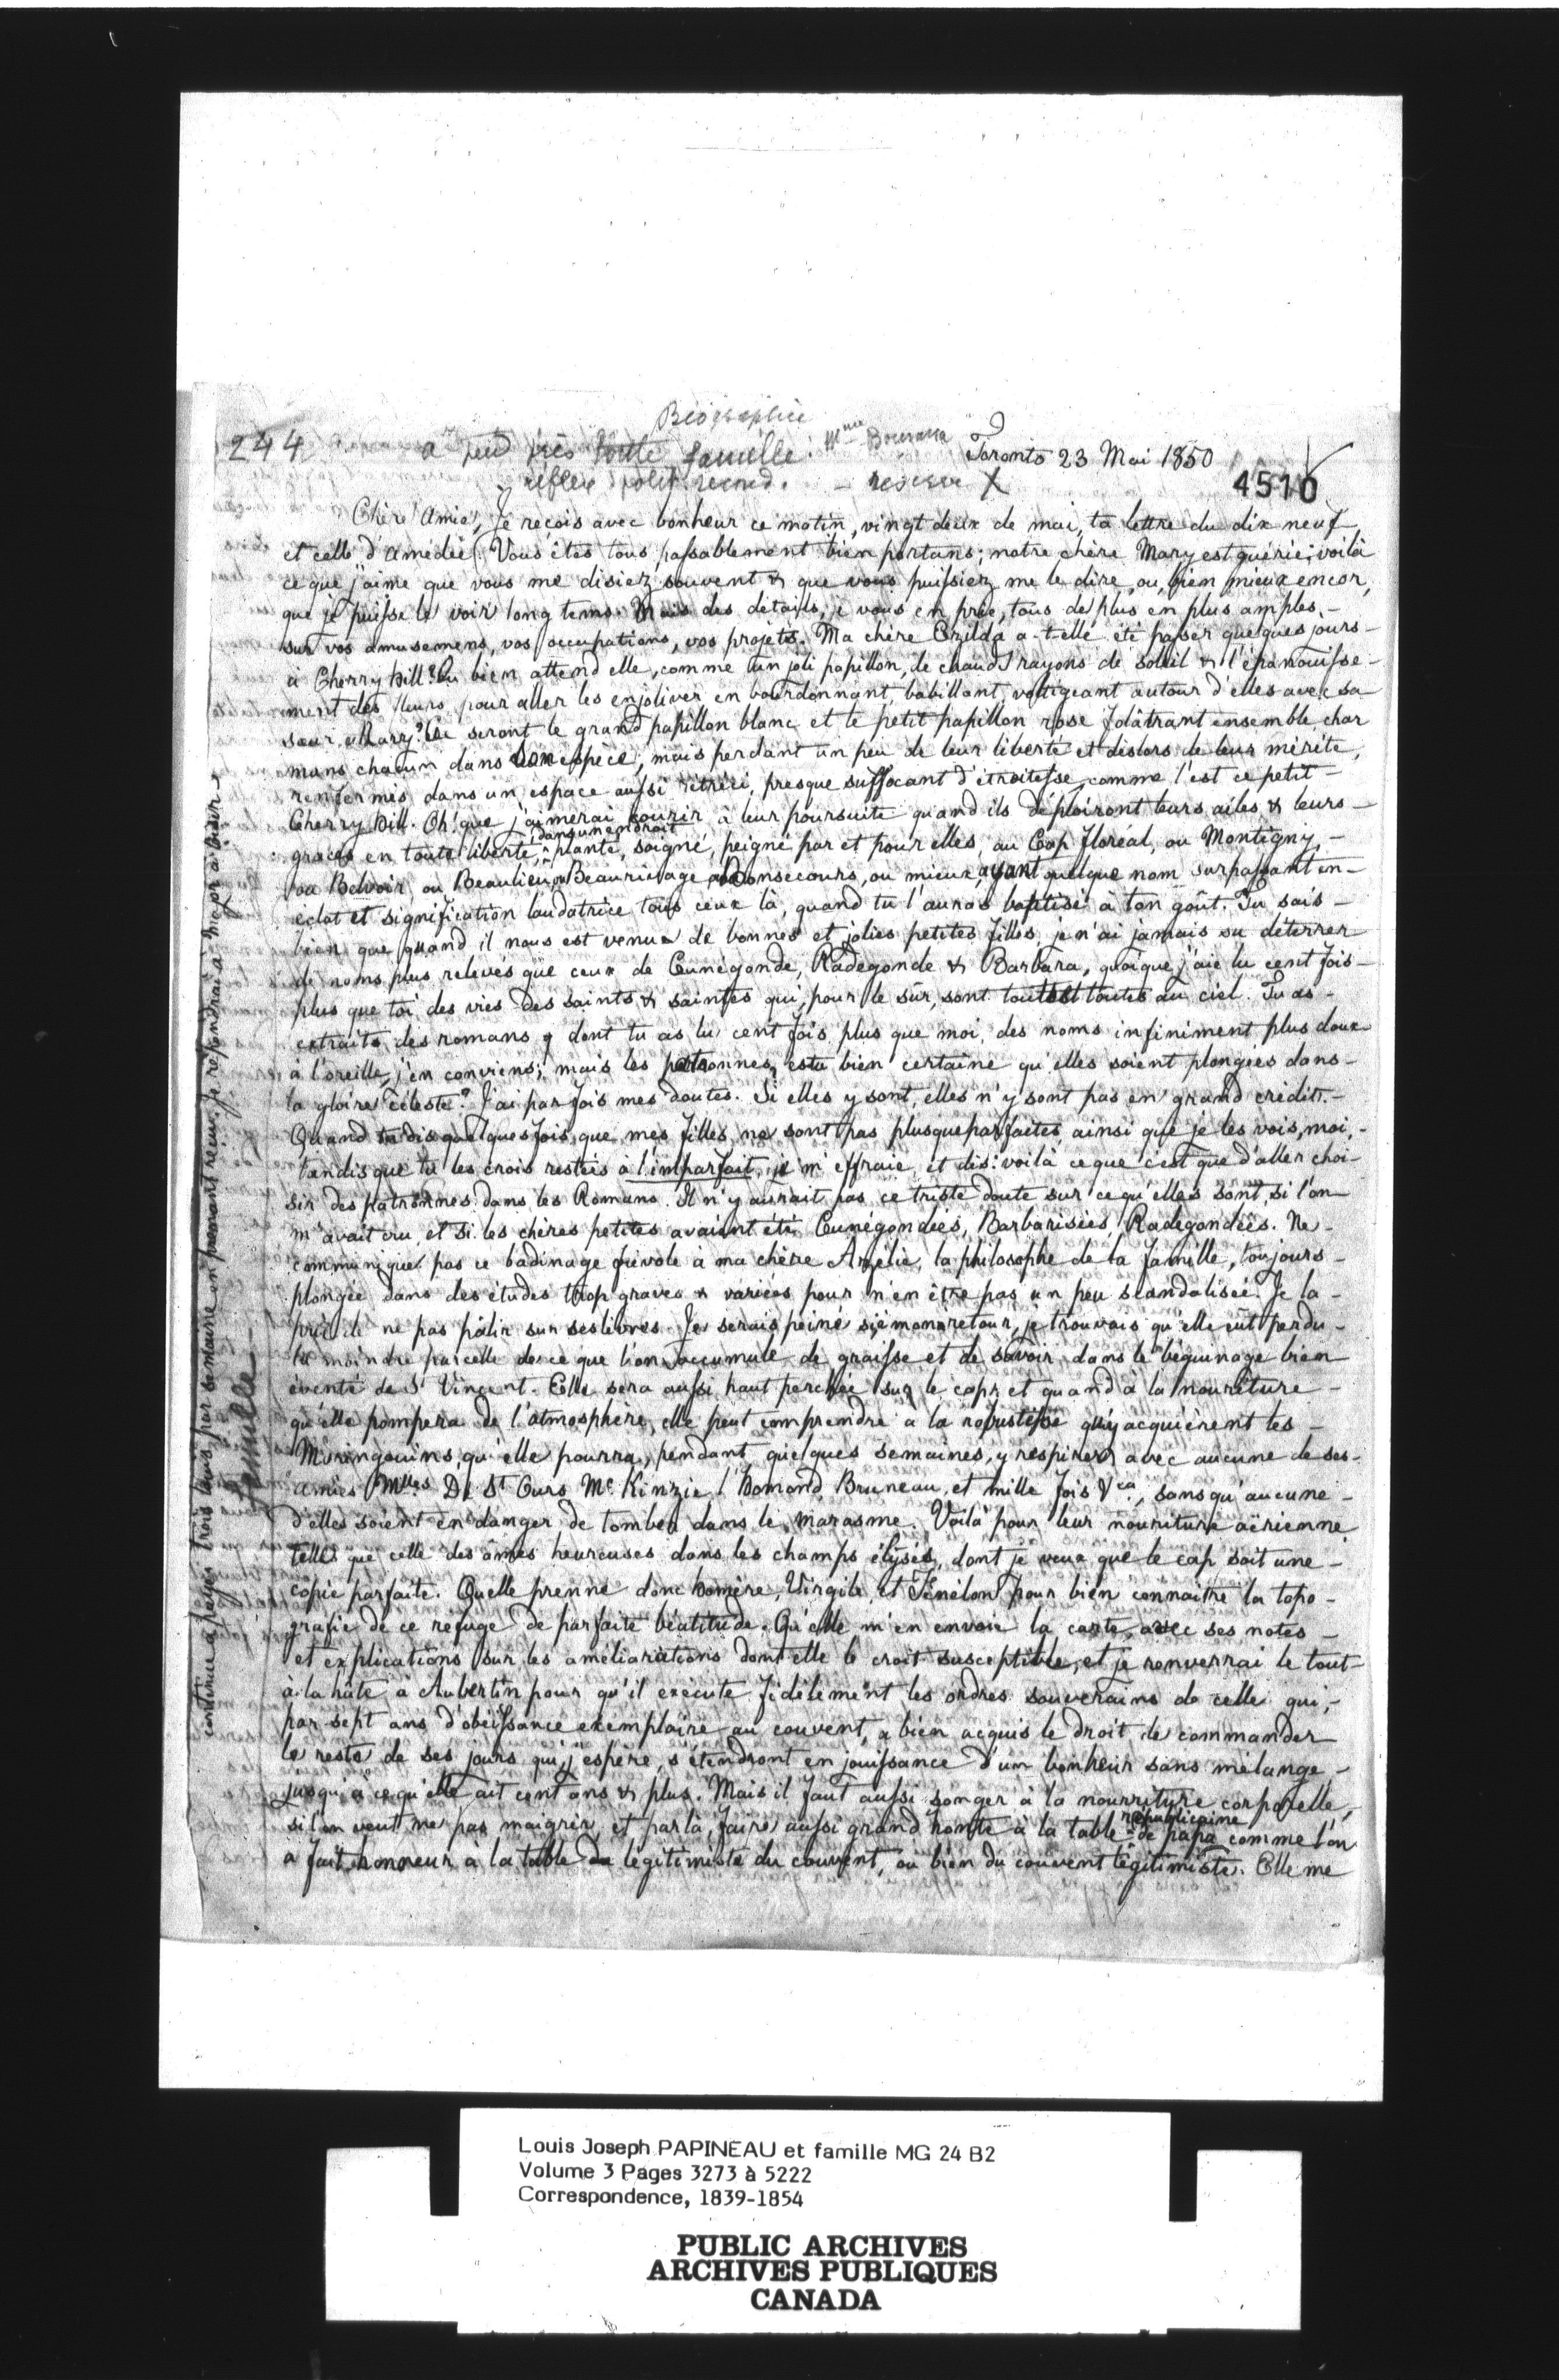 Biographie
244 a peu près toute famille. Mme Bourassa Toronto 23 Mai 1850
réflex polit second. - reserve X 4510
Chère Amie, Je reçois avec bonheur ce matin, vingt deux de mai, ta lettre du dix neuf,
et celle d'Amédée. Vous êtes tous passablement bien portans; notre chère Mary est guérie; voilà
ce que j'aime que vous me disiez souvent & que vous puissiez me le dire, ou bien mieux encor,
que je puisse le voir long tems. Mais des détails, je vous en prie, tous de plus en plus amples, -
sur vos amusemens, vos occupations, vos projets. Ma chère Ezilda a-t-elle été passer quelques jours -
à Cherry hill? Ou bien attend elle, comme un joli papillon, de chauds rayons de soleil & l'épanouisse-
ment des fleurs, pour aller les enjoliver en bourdonnant, babillant, voltigeant autour d'elles avec sa
sœur Mary? Ce seront le grand papillon blanc et le petit papillon rose folâtrant ensemble, char
mans chacun dans son espèce, mais perdant un peu de leur liberté et dislors de leur mérite,
renfermés dans un espace aussi rétréci, presque suffocant d'étroitesse, comme l'est ce petit -
Cherry hill. Oh! que j'aimerai courir à leur poursuite quand ils déploiront leurs ailes & leurs -
dans un endroit
graces en toute liberté, planté, soigné, peigné par et pour elles, au Cap floréal, ou Montigny, -
ou Belvoir, ou Beaulieu, ou Beaurivage, ou Bonsecours, ou mieux, ayant quelque nom surpassant en -
éclat et signification laudatrice tous ceux là, quand tu l'auras baptisé à ton goût. Tu sais -
bien que quand il nous est venu de bonnes et jolies petites filles je n'ai jamais su déterrer
de noms plus relevés que ceux de Cunégonde, Radegonde & Barbara, quoique j'aie lu cent fois -
plus que toi des vies des saints & saintes qui, pour le sûr, sont tous et toutes au ciel. Tu as -
extraits des romans, dont tu as lu cent fois plus que moi, des noms infiniment plus doux
à l'oreille, j'en conviens; mais les patronnes, estu bien certaine qu'elles soient plongées dans -
la gloire céleste? J'ai par fois mes doutes. Si elles y sont, elles n'y sont pas en grand crédit. -
Quand tu dis quelques fois que mes filles ne sont pas plusqueparfaites, ainsi que je les vois, moi, -
tandis que tu les crois restées à l'imparfait, je m'effraie et dis: voilà ce que c'est que d'aller choi-
sir des patronnes dans les Romans. Il n'y aurait pas ce triste doute sur ce qu'elles sont, si l'on
m'avait cru, et si les chères petites avaient été Cunégondées, Barbarisées, Radegondées. Ne -
communique pas ce badinage frivole à ma chère Azélie, la philosophe de la famille, toujours -
plongée dans des études trop graves & variées pour n'en être pas un peu scandalisée. Je la -
prie de ne pas pâlir sur ses livres. Je serais peiné si, à mon retour, je trouvais qu'elle eût perdu -
la moindre parcelle de ce que l'on accumule de graisse et de savoir dans le béguinage bien
éventé de St Vincent. Elle sera aussi haut perchée sur le cap, et quand à la nouriture -
qu'elle pompera de l'atmosphère, elle peut comprendre à la robustesse qu'y acquièrent les -
Maringouins, qu'elle pourra, pendant quelques semaines, y respirer avec aucune de ses -
amies Mlles De St Ours McKinzie, Bruneau, et mille fois &ca, sans qu'aucune -
d'elles soient en danger de tomber dans le marasme. Voilà pour leur nouriture aërienne
telle que celle des âmes heureuses dans les champs élysés, dont je veux que le cap soit une -
copie parfaite. Quelle prenne donc homère, Virgile, et Fénélon pour bien connaitre la topo -
grafie de ce refuge de parfaite béatitude. Qu'elle m'en envoie la carte, avec ses notes -
et explications sur les améliorations dont elle le croit susceptible, et je renverrai le tout -
à la hâte à Aubertin pour qu'il exécute fidèlement les ordres souverains de celle qui, -
par sept ans d'obéissance exemplaire au couvent, a bien acquis le droit de commander
le reste de ses jours qui, j'espère, s'étendront en jouissance d'un bonheur sans mélange -
jusqu'à ce qu'elle ait cent ans & plus. Mais il faut aussi songer à la nourriture corporelle,
républicaine
si l'on veut ne pas maigrir, et par là, faire aussi grand honte à la table de papa comme l'on
a fait honneur à la table légitimiste du couvent, ou bien du couvent légitimiste. Elle me
continue à payer trois fois par semaine en recevant je répondrai à major à loisir -
famille
Louis Joseph PAPINEAU et famille MG 24 B2
Volume 3 Pages 3273 à 5222
Correspondence, 1839-1854
PUBLIC ARCHIVES
ARCHIVES PUBLIQUES
CANADA